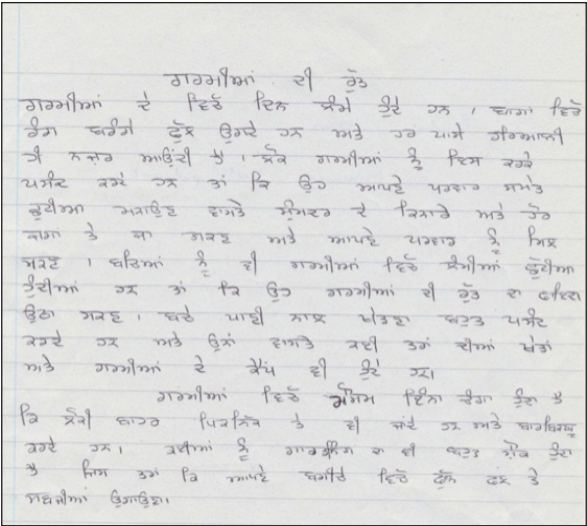 ਗਰਮੀਆਂ ਦੀ ਰੁੱਤ
ਗਰਮੀਆਂ ਦੇ ਵਿਚ ਦਿਨ ਲੰਮੇ ਹੁੰਦੇ ਹਨ । ਬਾਗਾਂ ਵਿਚ
ਰੰਗ ਬਰੰਗੇ ਫੁੱਲ ਉਗਦੇ ਹਨ ਅਤੇ ਹਰ ਪਾਸੇ ਹਰਿਆਲੀ
ਹੀ ਨਜ਼ਰ ਆਉਂਦੀ ਹੈ । ਲੋਕ ਗਰਮੀਆਂ ਨੂੰ ਇਸ ਕਰਕੇ
ਪਸੰਦ ਕਰਦੇ ਹਨ ਤਾਂ ਕਿ ਉਹ ਆਪਣੇ ਪਰਵਾਰ ਸਮੇਤ
ਛੁਟੀਆ ਮਨਾਉਣ ਵਾਸਤੇ ਸੁੰਮਦਰ ਦੇ ਕਿਨਾਰੇ ਅਤੇ ਹੋਰ
ਜਾਗਾਂ ਤੇ ਜਾ ਸਕਣ ਅਤੇ ਆਪਣੇ ਪਰਵਾਰ ਨੂੰ ਮਿਲ
ਸਕਣ । ਬਚਿਆਂ ਨੂੰ ਵੀ ਗਰਮੀਆਂ ਵਿਚ ਲੰਮੀਆਂ ਛੁੱਟੀਆ
ਹੁੰਦੀਆਂ ਹਨ ਤਾਂ ਕਿ ਉਹ ਗਰਮੀਆਂ ਦੀ ਰੁੱਤ ਦਾ ਫਾਇਦਾ
ਉਠਾ ਸਕਣ । ਬਚੇ ਪਾਣੀ ਨਾਲ ਖੇਡਣਾ ਬਹੁਤ ਪਸੰਦ
ਕਰਦੇ ਹਨ ਅਤੇ ਉਨਾਂ ਵਾਸਤੇ ਕਈ ਤਰਾਂ ਦੀਆਂ ਖੇਡਾਂ
ਅਤੇ ਗਰਮੀਆਂ ਦੇ ਕੈਂਪ ਵੀ ਹੁੰਦੇ ਹਨ।
ਗਰਮੀਆਂ ਵਿਚ ਮੌਸਮ ਇੰਨਾ ਚੰਗਾ ਹੁੰਦਾ ਹੈ
ਕਿ ਲੋਕੀ ਬਾਹਰ ਪਿਕਨਿਕ ਤੇ ਵੀ ਜਾਂਦੇ ਹਨ ਅਤੇ ਬਾਰਬਿਕਯੂ
ਕਰਦੇ ਹਨ। ਕਈਆਂ ਨੂੰ ਗਾਰਡਨਿੰਗ ਦਾ ਵੀ ਬਹੁਤ ਸ਼ੌਕ ਹੁੰਦਾ
ਹੈ ਜਿਸ ਤਰਾਂ ਕਿ ਆਪਣੇ ਬਗੀਚੇ ਵਿਚ ਫੁੱਲ ਫਲ ਤੇ
ਸਬਜੀਆਂ ਉਗਾਉਣਾ।